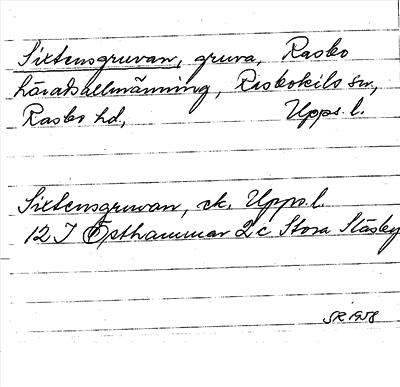 Sixtensgruvan, gruva, Rasbo
häradsallmänning, Rasbokils sn,
Rasbo hd, Upps. l.
Sixtensgruvan, ek. Upps. l.
12 I Östhammar 2c Stora Stäsby
SR 1958